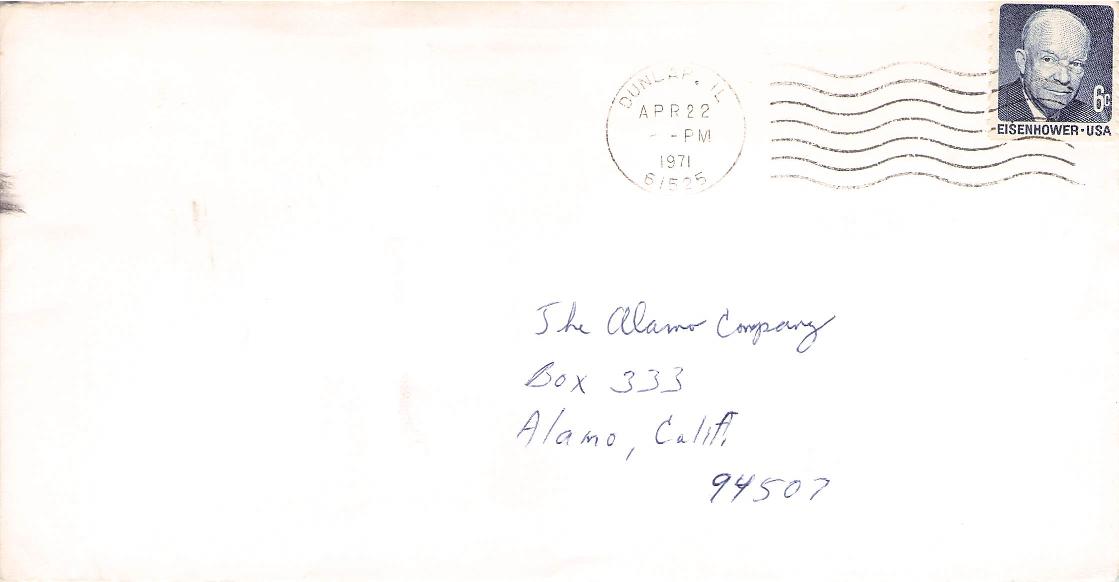 DUNLAP, IL
APR 22
- - PM
1971
61525
6c
EISENHOWER · USA
The Alamo Company
Box 333
Alamo, Calif.
94507